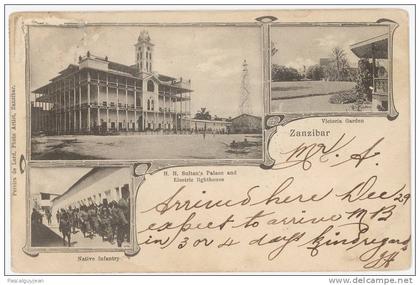 Pereira de Lord, Photo Artist, Zanzibar.
Victoria Garden
Zanzibar
H. H. Sultan's Palace and
Electric lighthouse
Native Infantry
Arrived here Dec 29
expect to arrive
in 3 or 4 days Kind regards
Alguyjean
www.delcampe.net